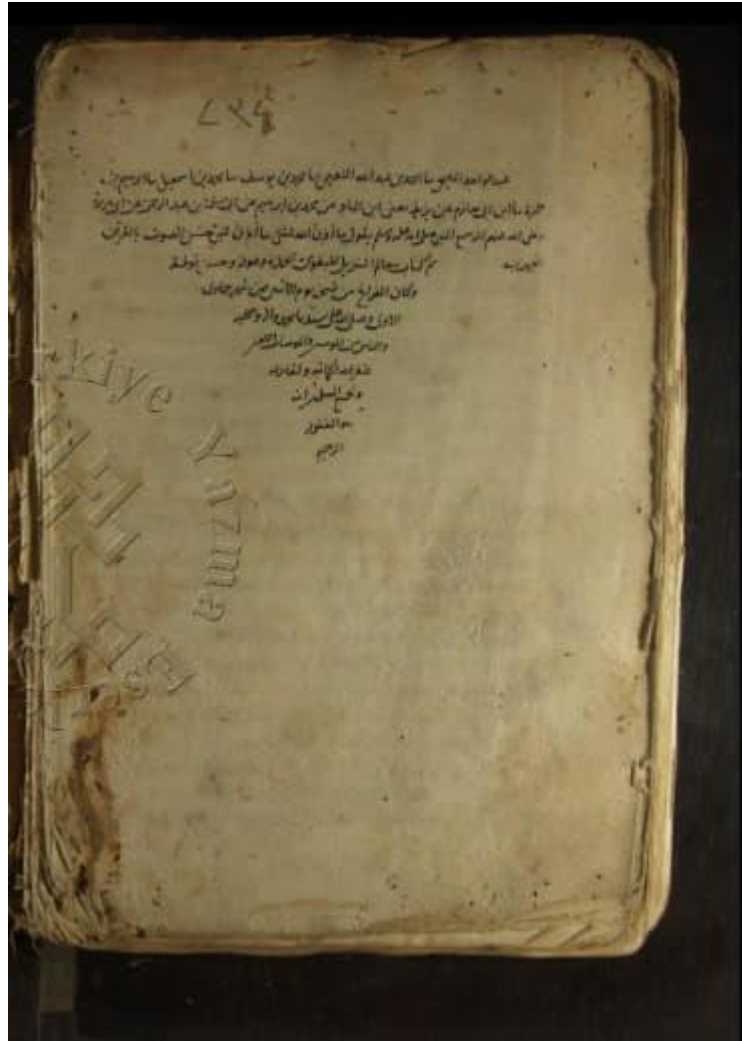 ٧٣٤
عبد الواحد المليحي نا احمد بن عبد الله النعيمي نا محمد بن يوسف نا محمد بن اسمعيل نا ابرهيم بن
حمزة نا ابن ابي حازم عن يزيد يعني ابن الهاد عن محمد بن ابرهيم عن ابي سلمة بن عبد الرحمن عن ابي هريرة
رضي الله عنه انه سمع النبي صلى الله عليه وسلم يقول ما اذن الله لشي ما اذن لنبي حسن الصوت بالقرآن
يجهر به
تم كتاب معالم التنزيل للبغوي بحمد الله وعونه وحسن توفيقه
وكان الفراغ من يوم الاثنين من شهر جمادى
الاول وصلى الله على سيدنا محمد واله وصحبه
غفر الله لكاتبه ولقاريه
ولجميع المسلمين انه
هو الغفور
الرحيم
Türkiye Yazma